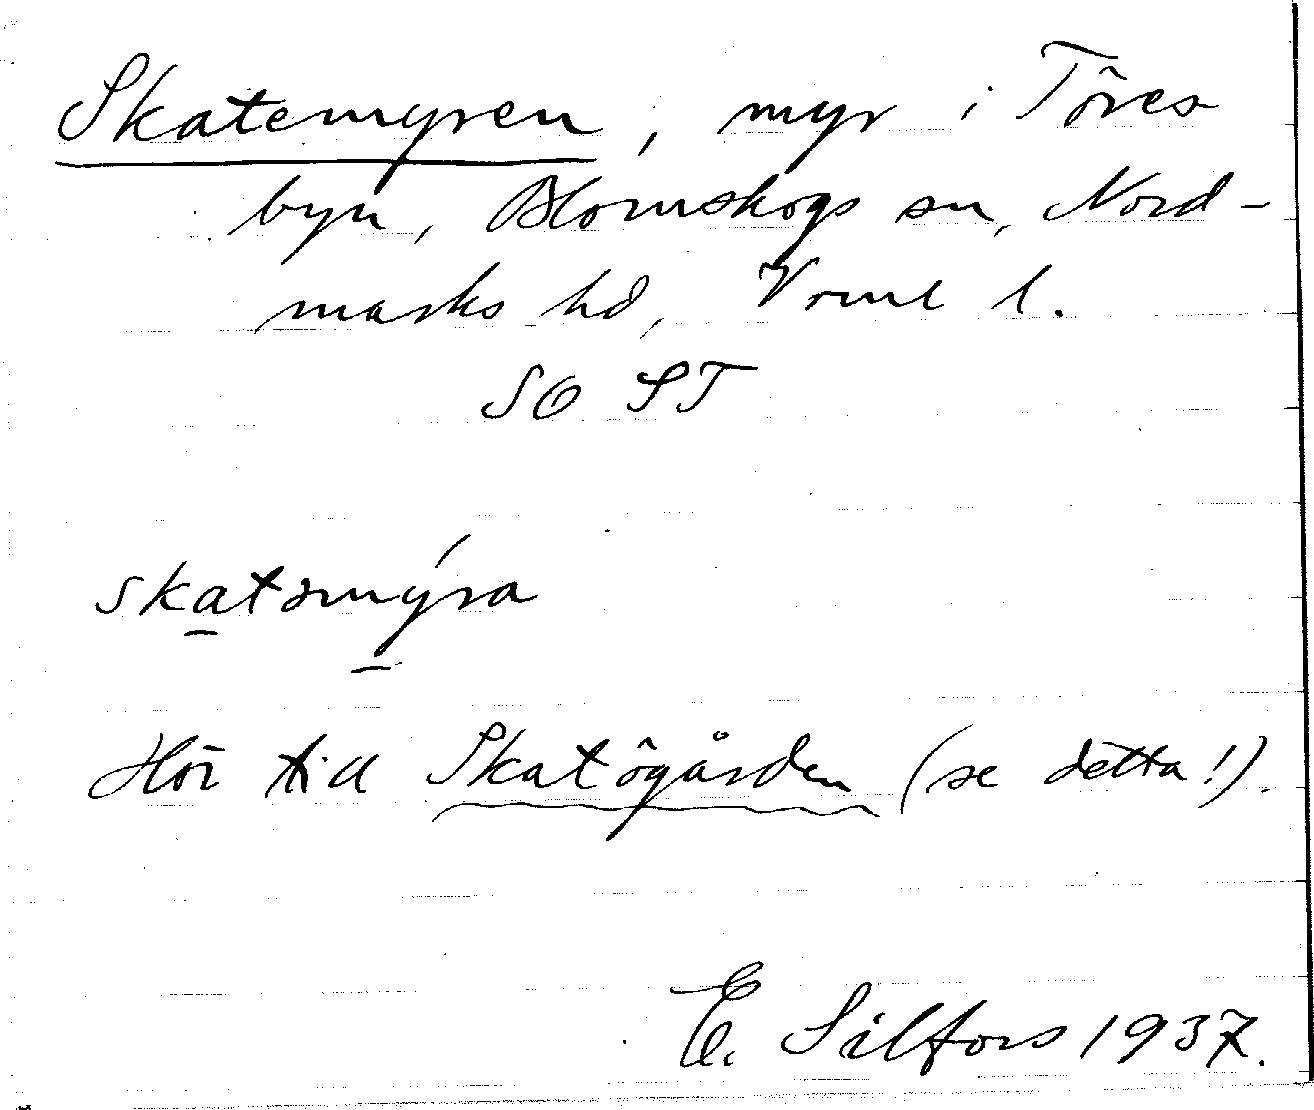 Skatemyren, myr i Töres
byn, Blomskogs sn, Nord-
marks hd, Vrml l.
SO ST
skatəmýra
Hör till Skatögården (se detta!).
E. Silfors 1937.